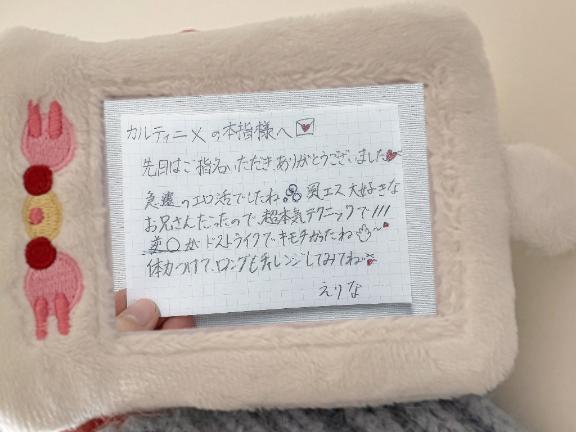 カルティニ×の本指様へ
先日はご指名いただきありがとうございました
急遽のエロ活でしたね 風エス大好きな
お兄さんだったので、超本気テクニックで!!!
逆○がドストライクでキモチかったね
体力つけて、ロングもチャレンジしてみてね
えりな